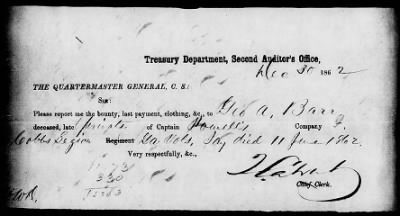 Treasury Department, Second Auditor's Office,
Dec 30 1862
THE QUARTERMASTER GENERAL, C. S.:
SIR:
Please report me the bounty, last payment, clothing, &c., to Geo A. Barr
deceased, late private of Captain Howell's Company F.
Cobb's Legion Regiment Ga Vols, Say died 11 June 1862.
Very respectfully, &c.,
Chief Clerk.